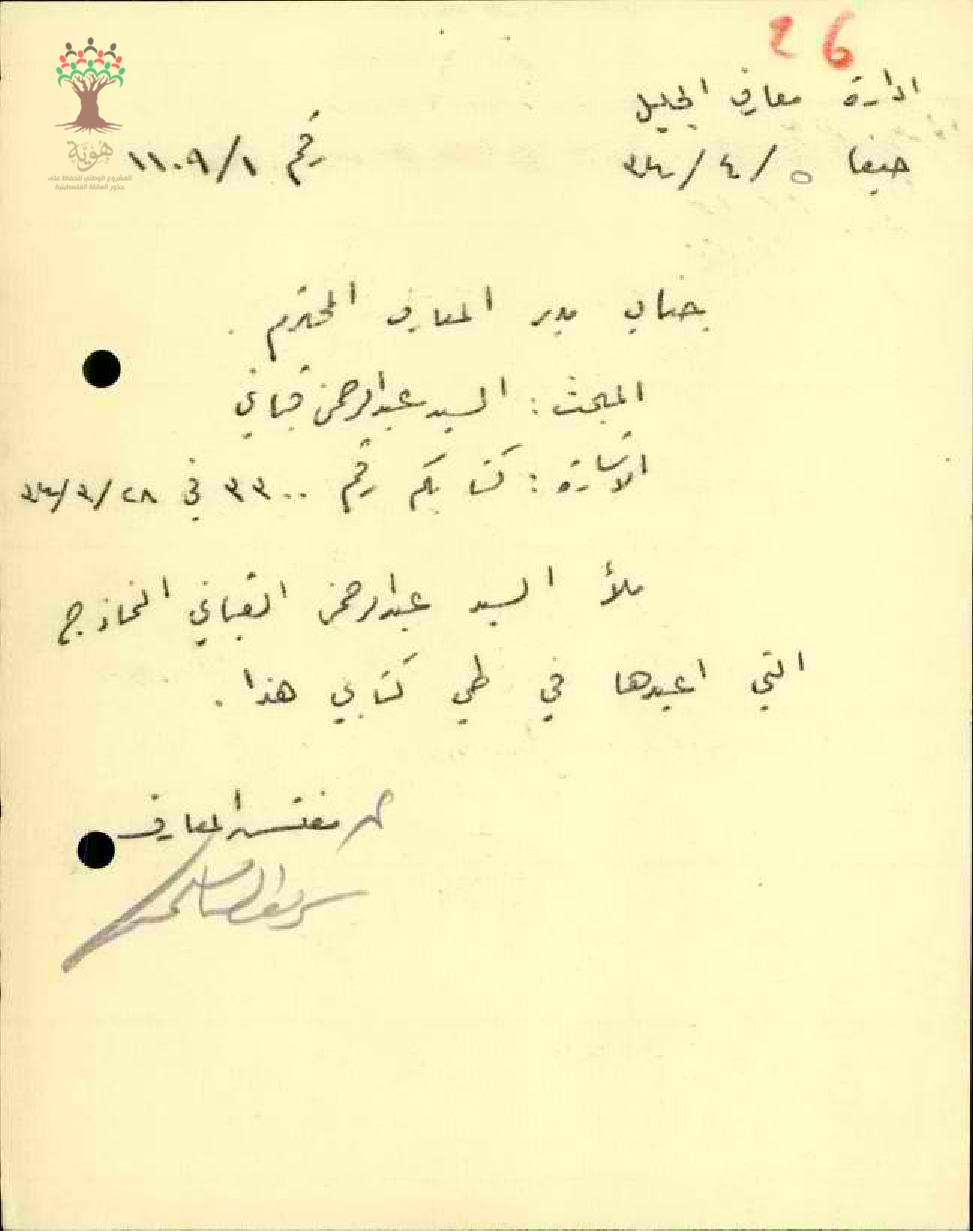 26
ادارة معارف الجليل
حيفا ٥/٤/٣٤
رقم ١١٠٩/١
هوية
المشروع الوطني للحفاظ على
جذور العائلة الفلسطينية
جناب مدير المعارف المحترم.
المبحث: السيد عبدالرحمن قباني
الاشارة: كتابكم رقم ٣٣٠٠ في ٢٨/٣/٣٤
ملأ السيد عبدالرحمن القباني النماذج
التي اعيدها في طي كتابي هذا.
مفتش المعارف